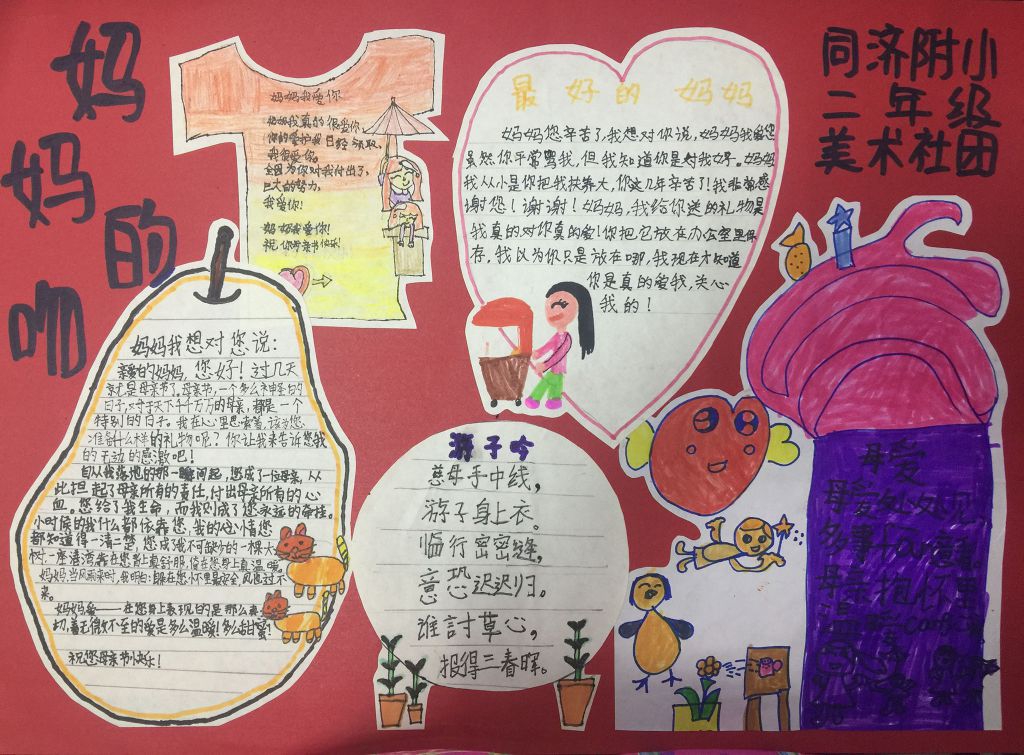 妈
妈
的
吻
同济附小
二年级
美术社团
妈妈我爱你
妈妈我真的很爱你
我很爱你。
全因为你对我付出了,
巨大的努力,
我爱你!
妈妈我爱你!
祝你母亲节快乐!
最好的 妈妈
妈妈您辛苦了,我想对你说,妈妈我爱您
虽然你平常骂我,但我知道你是对我好。妈妈
我从小是你把我扶养大,你这几年辛苦了!我非常感
谢您!谢谢!妈妈,我给你送的礼物是
我真的对你真的爱!你把它放在办公室里保
存,我以为你只是放在哪,我现在才知道
你是真的爱我,关心
我的!
妈妈我想对您说:
亲爱的妈妈,您好!过几天
就是母亲节了。母亲节,一个多么神圣的
日子,对于天下千千万万的母亲,都是一个
特别的日子。我在心里思索着,该为您
准备什么样的礼物呢?你让我来告诉您我
的无边的感激吧!
自从我落地的那一瞬间起,您成了一位母亲,从
此担起了母亲所有的责任,付出母亲所有的心
血。您给了我生命,而我则成了您永远的牵挂。
小时候的我什么都依靠您,我的心情您
都知道得一清二楚,您成了我不可缺少的一棵大
树,一座港湾靠在您肩上真舒服,倚在您身上真温暖。
妈妈当风雨来时,我明白:躲在您怀里最安全,风也过不
来。
妈妈爱——在您身上表现的是那么亲
切,着无微不至的爱是多么温暖!多么甜蜜!
祝您母亲节快乐!
游子吟
慈母手中线,
游子身上衣。
临行密密缝,
意恐迟迟归。
谁討草心,
报得三春晖。
母爱
母爱处处见
多事